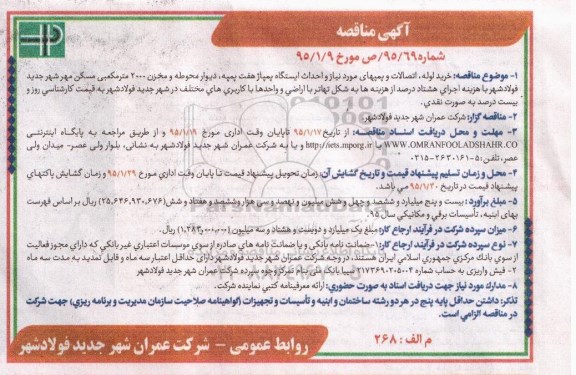 آگهی مناقصه
شماره ۹۵/۶۹/ص مورخ ۹۵/۱/۹
۱- موضوع مناقصه: خرید لوله، اتصالات و پمپهای مورد نیاز و احداث ایستگاه پمپاژ هفت پمپه، دیوار محوطه و مخزن ۲۰۰۰ مترمکعبی مسکن مهر شهر جدید
فولادشهر با هزینه اجرای هشتاد درصد از هزینه ها به شکل تهاتر با اراضی و واحدها با کاربری های مختلف در شهر جدید فولادشهر به قیمت کارشناسی روز و
بیست درصد به صورت نقدی.
۲- مناقصه گزار: شرکت عمران شهر جدید فولادشهر
۳- مهلت و محل دریافت اسناد مناقصه: از تاریخ ۹۵/۱/۱۷ تا پایان وقت اداری مورخ ۹۵/۱/۱۹ و از طریق مراجعه به پایگاه اینترنتی
WWW.OMRANFOOLADSHAHR.CO یا http://iets.mporg.ir و یا به شرکت عمران شهر جدید فولادشهر به نشانی: بلوار ولی عصر- میدان ولی
عصر، تلفن: ۵-۲۶۳۰۱۶۱-۰۳۱۵
۴- محل و زمان تسلیم پیشنهاد قیمت و تاریخ گشایش آن: زمان تحویل پیشنهاد قیمت تا پایان وقت اداری مورخ ۹۵/۱/۲۹ و زمان گشایش پاکتهای
پیشنهاد قیمت در تاریخ ۹۵/۱/۳۰ می باشد.
۵- مبلغ برآورد: بیست و پنج میلیارد و ششصد و چهل و شش میلیون و نهصد و سی هزار و ششصد و هفتاد و شش (۲۵,۶۴۶,۹۳۰,۶۷۶) ریال بر اساس فهرست
بهای ابنیه، تأسیسات برقی و مکانیکی سال ۹۵.
۶- میزان سپرده شرکت در فرآیند ارجاع کار: مبلغ یک میلیارد و دویست و هشتاد و سه میلیون (۱,۲۸۳,۰۰۰,۰۰۰) ریال
۷- نوع سپرده شرکت در فرآیند ارجاع کار: ۱- ضمانت نامه بانکی و یا ضمانت نامه های صادره از سوی موسسات اعتباری غیر بانکی که دارای مجوز فعالیت
از سوی بانک مرکزی جمهوری اسلامی ایران هستند، در وجه شرکت عمران شهر جدید فولادشهر دارای حداقل اعتبار سه ماه و قابل تمدید به مدت سه ماه
۲- فیش واریزی به حساب شماره ۲۱۷۳۶۹۰۲۰۵۰۰۲ سیبا بانک ملی بنام تمرکز وجوه سپرده شرکت عمران شهر جدید فولادشهر
۸- مدارک مورد نیاز جهت دریافت اسناد به صورت حضوری: ارائه معرفینامه کتبی نماینده شرکت.
تذکر: داشتن حداقل پایه پنج در هر دو رشته ساختمان و ابنیه و تأسیسات و تجهیزات (گواهینامه صلاحیت سازمان مدیریت و برنامه ریزی) جهت شرکت
در مناقصه الزامی است.
م الف: ۲۶۸
روابط عمومی - شرکت عمران شهر جدید فولادشهر